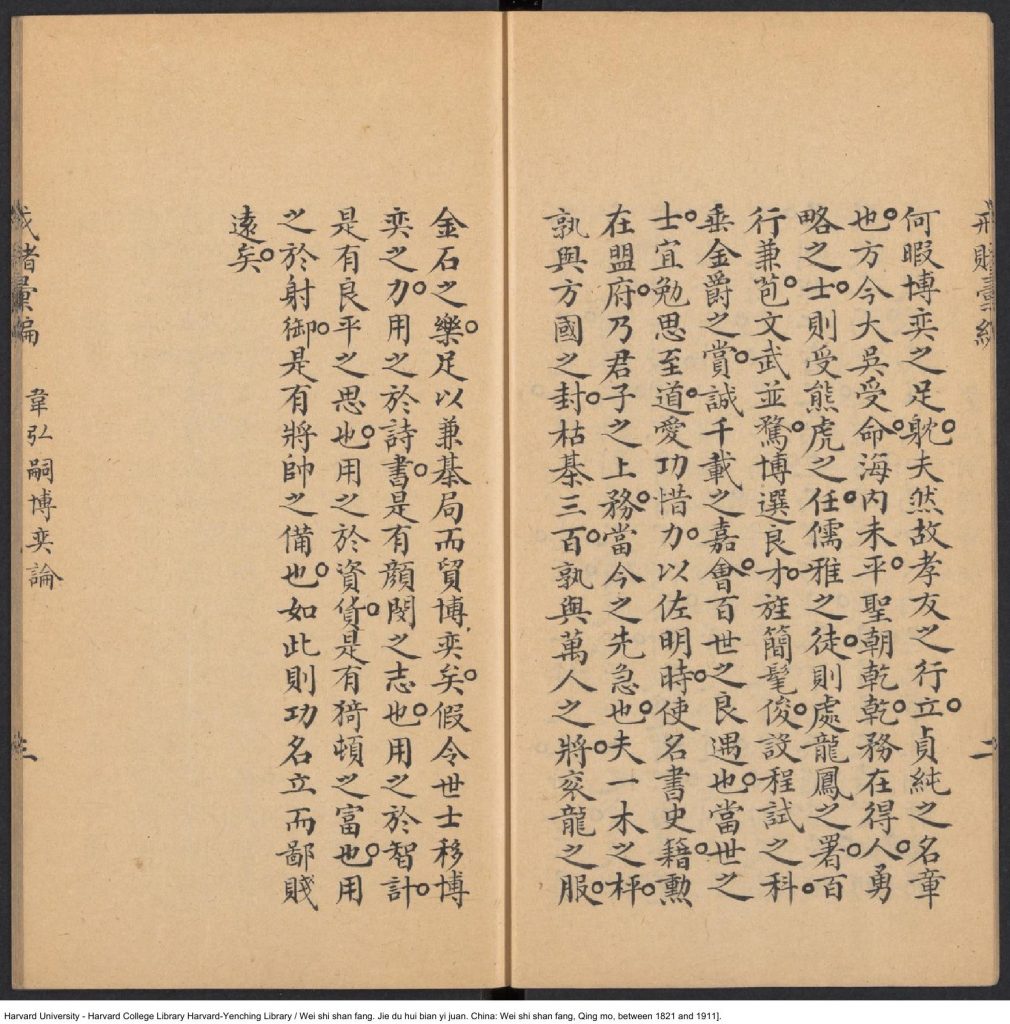 戒賭彙編 二
何暇博奕之足躭夫然故孝友之行立貞純之名章
也方今大吳受命海內未平聖朝乾乾務在得人勇
略之士則受熊虎之任儒雅之徒則處龍鳳之署百
行兼苞文武並騖博選良才旌簡髦俊設程試之科
垂金爵之賞誠千載之嘉會百世之良遇也當世之
士宜勉思至道愛功惜力以佐明時使名書史籍勲
在盟府乃君子之上務當今之先急也夫一木之枰
孰與方國之封枯棊三百孰與萬人之將衮龍之服
金石之樂足以兼棊局而貿博奕矣假令世士移博
奕之力用之於詩書是有顏閔之志也用之於智計
是有良平之思也用之於資貨是有猗頓之富也用
之於射御是有將帥之備也如此則功名立而鄙賤
遠矣
戒賭彙編 韋弘嗣博奕論
Harvard University - Harvard College Library Harvard-Yenching Library / Wei shi shan fang. Jie du hui bian yi juan. China: Wei shi shan fang, Qing mo, between 1821 and 1911].